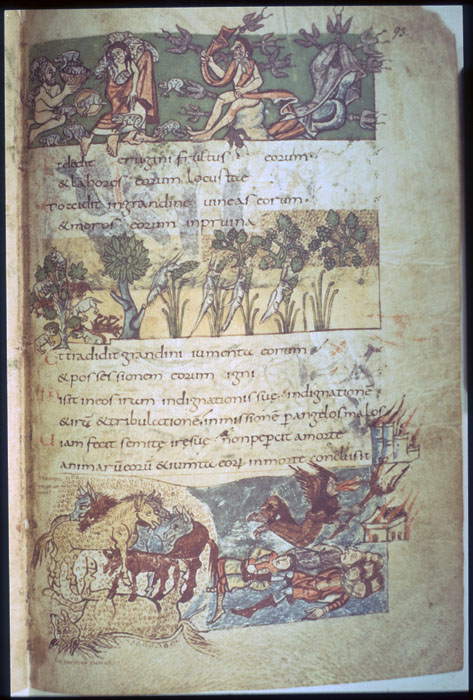 93
Et dedit erugini fructus eorum·
& labores eorum locustae
Et occidit in grandine uineas eorum·
& moros eorum in pruina
Et tradidit grandini iumenta eorum
& possessionem eorum igni
Misit in eos iram indignationis suę indignatione
& irā & tribulatione inmissione p angelos malos
Uiam fecit semitę irę suę non pepcit a morte
animarū eorū & iumta eorū in morte conclusit